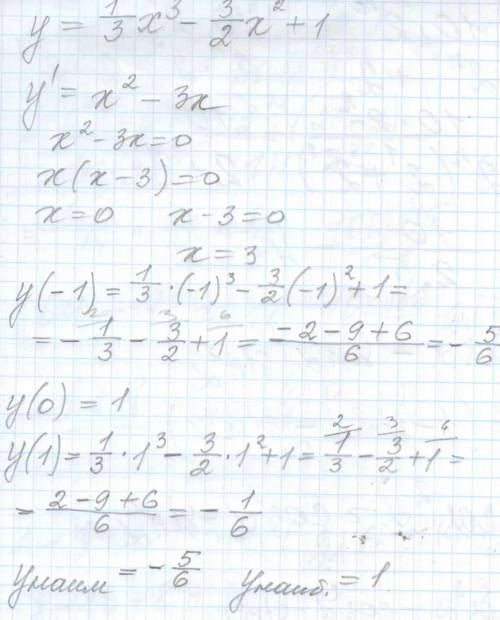 y = 1/3 x³ - 3/2 x² + 1
y' = x² - 3x
x² - 3x = 0
x(x - 3) = 0
x = 0 x - 3 = 0
x = 3
y(-1) = 1/3 · (-1)³ - 3/2 (-1)² + 1 =
= - 1/3 - 3/2 + 1 = (-2 - 9 + 6)/6 = - 5/6
y(0) = 1
y(1) = 1/3 · 1³ - 3/2 · 1² + 1 = 1/3 - 3/2 + 1 =
= (2 - 9 + 6)/6 = - 1/6
yнаим = - 5/6 yнаиб. = 1